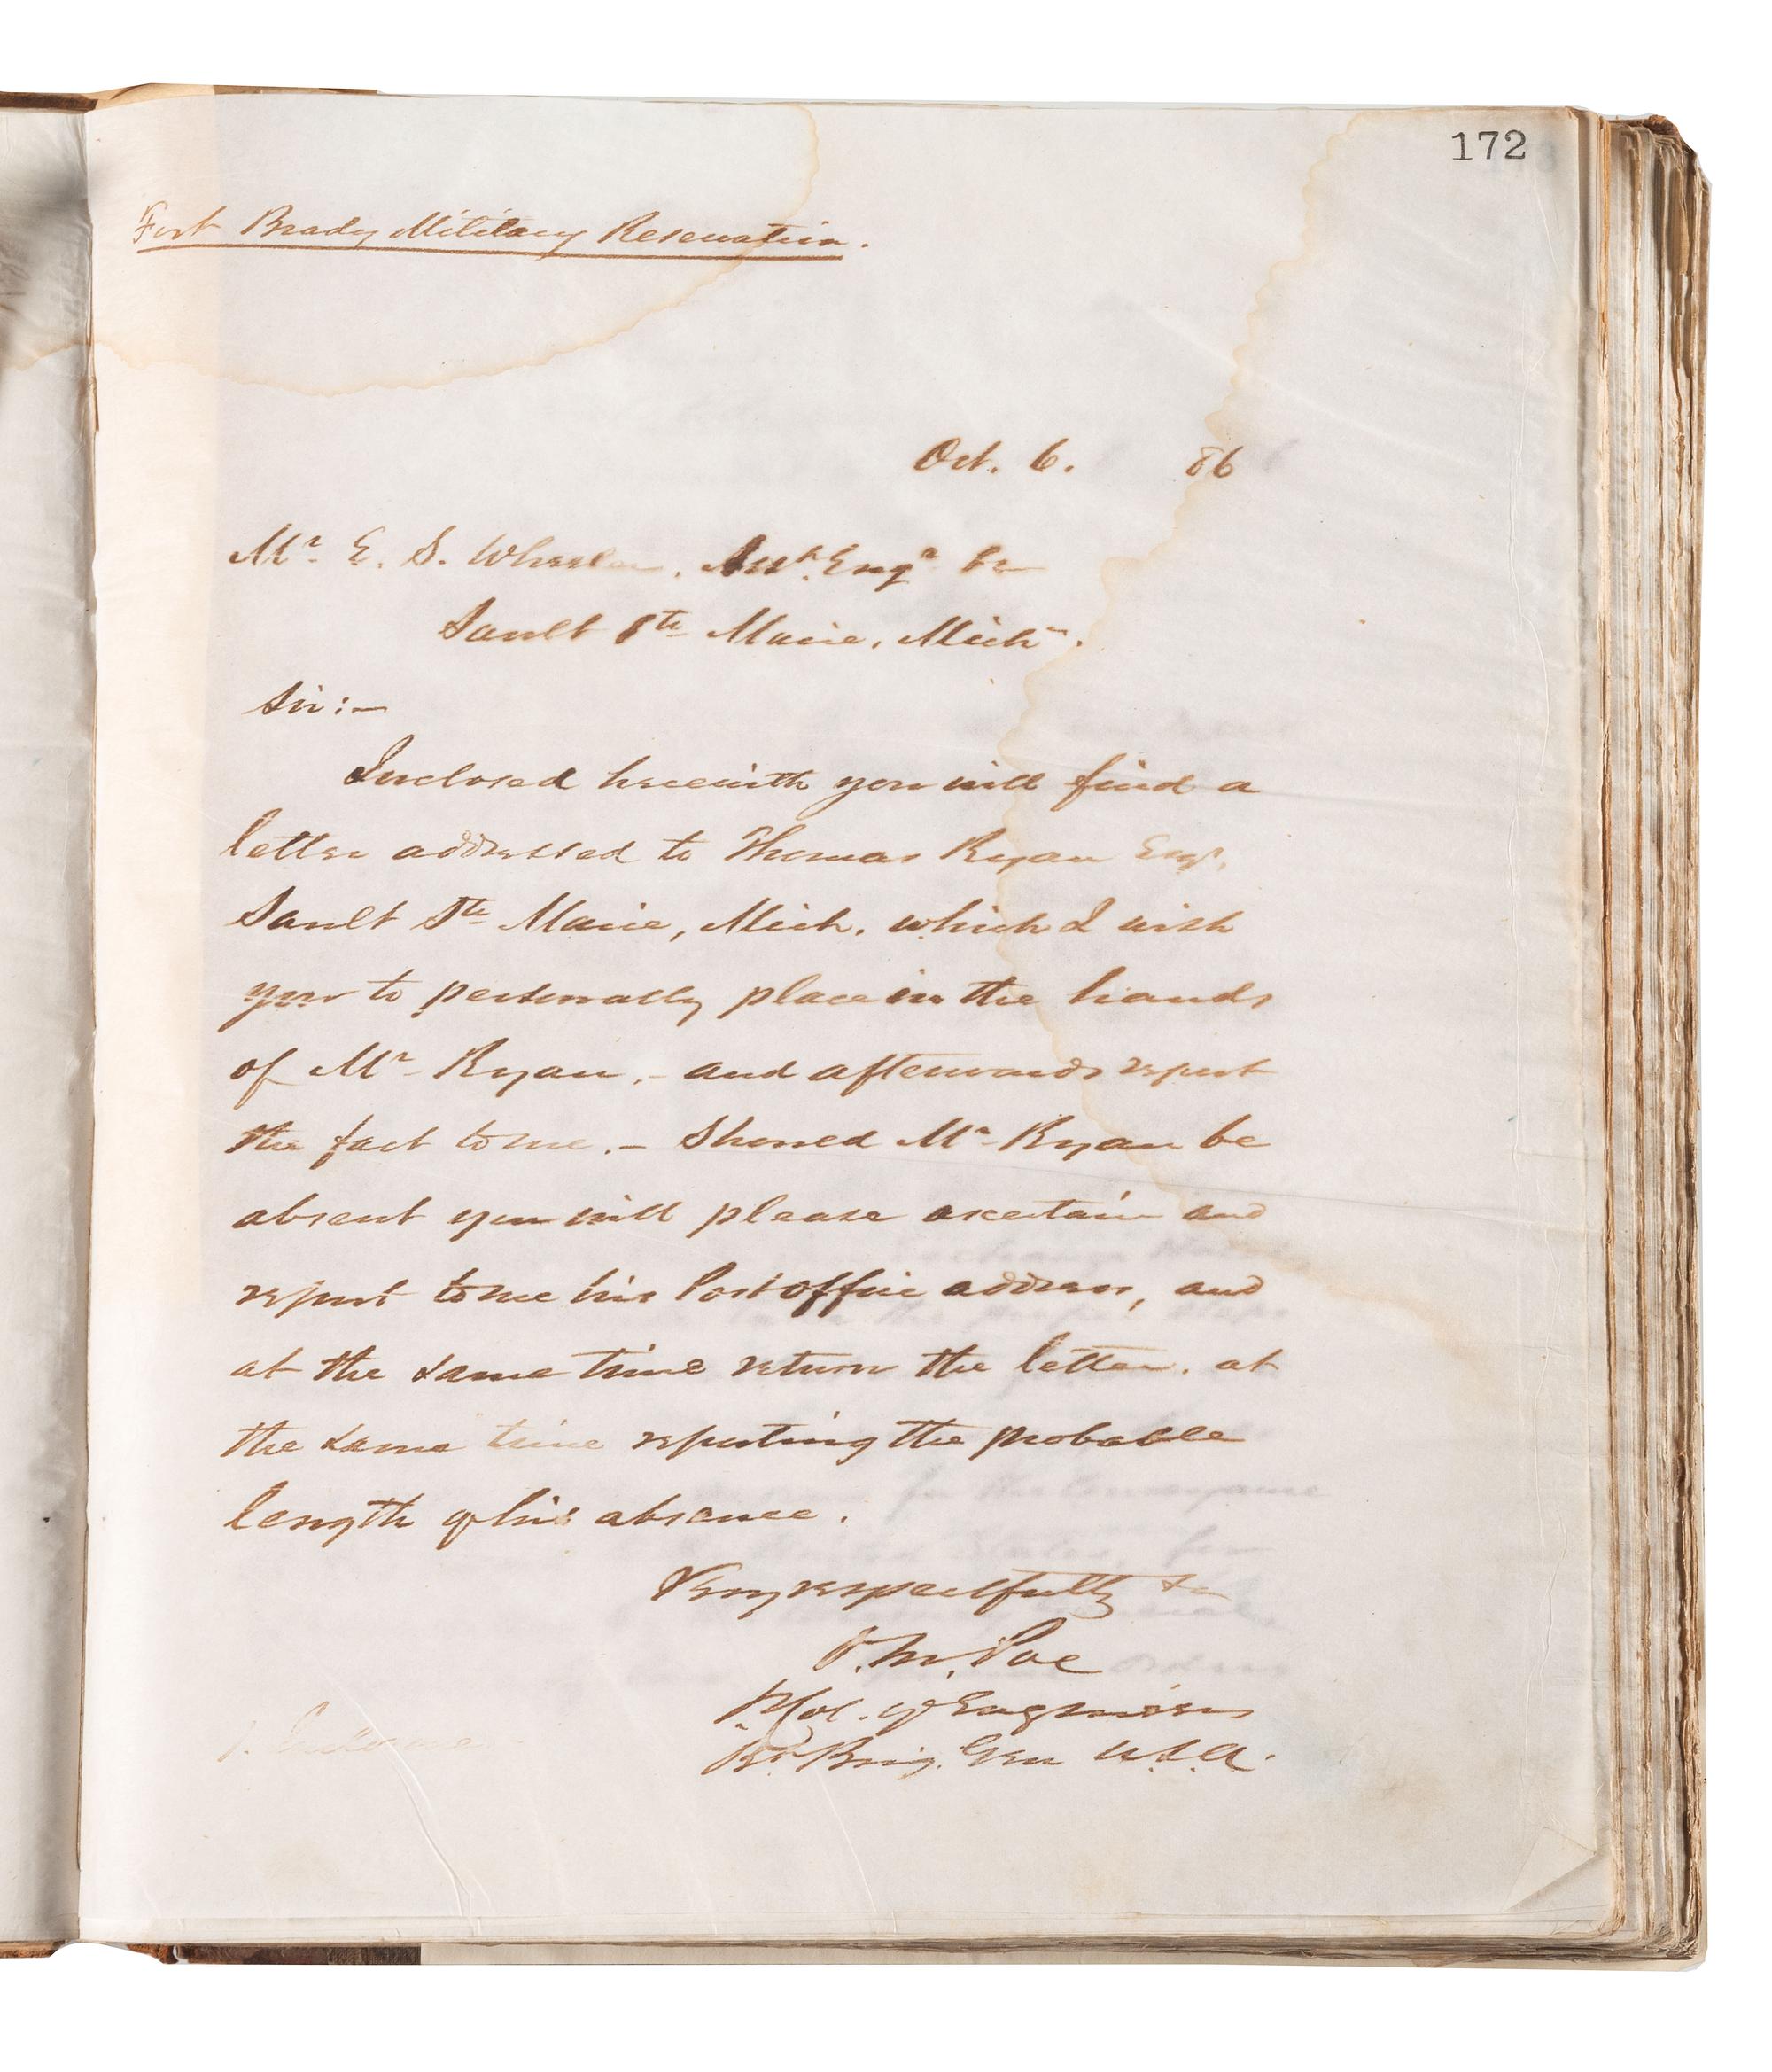 172
Fort Brady Military Reservation.
Oct. 6. 86
Mr. E. S. Wheeler, Asst. Engr. &c
Sault Ste Marie, Mich.
Sir:—
Inclosed herewith you will find a
letter addressed to Thomas Ryan Esqr.
Sault Ste Marie, Mich. which I wish
you to personally place in the hands
of Mr. Ryan, - and afterwards report
the fact to me. — Should Mr. Ryan be
absent you will please ascertain and
report to me his Post office address, and
at the same time return the letter. at
the same time reporting the probable
length of his absence.
Very respectfully &c
O. M. Poe
Lt. Col. of Engineers
Bt. Brig. Gen U.S.A.
1. Inclosure